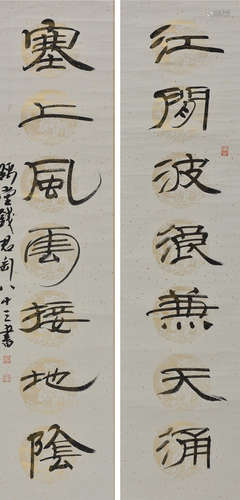 江閒波浪兼天涌
塞上風雲接地陰
豫堂錢君匋八十三書